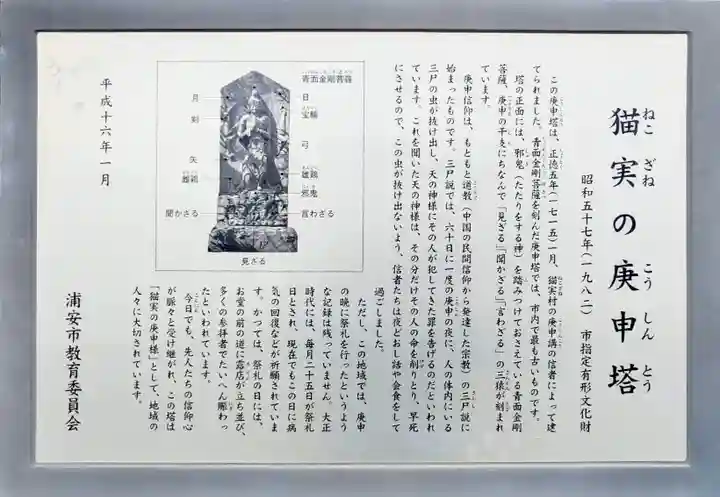 猫実の庚申塔
ねこざね
こうしんとう
昭和五十七年(一九八二) 市指定有形文化財
この庚申塔は、正徳五年(一七一五)一月、猫実村の庚申講の信者によって建
てられました。青面金剛菩薩を刻んだ庚申塔では、市内で最も古いものです。
塔の正面には、邪鬼(たたりをする神)を踏みつけておさえている青面金剛
菩薩、庚申の干支にちなんで「見ざる」「聞かざる」「言わざる」の三猿が刻まれ
ています。
庚申信仰は、もともと道教(中国の民間信仰から発達した宗教)の三尸説に
始まったものです。三尸説では、六十日に一度の庚申の夜に、人の体内にいる
三尸の虫が抜け出し、天の神様にその人が犯してきた罪を告げるのだといわれ
ています。これを聞いた天の神様は、その分だけその人の命を削りとり、早死
にさせるので、この虫が抜け出ないよう、信者たちは夜どおし話や会食をして
過ごしました。
ただし、この地域では、庚申
の晩に祭礼を行ったというよう
な記録は残っていません。大正
時代には、毎月二十五日が祭礼
日とされ、現在でもこの日に病
気の回復などが祈願されていま
す。かつては、祭礼の日には、
お堂の前の道に露店が立ち並び、
多くの参拝者でたいへん賑わっ
たといわれています。
今日でも、先人たちの信仰心
が脈々と受け継がれ、この塔は
「猫実の庚申様」として、地域の
人々に大切されています。
浦安市教育委員会
平成十六年一月
青面金剛菩薩
日
宝輪
弓
雄鶏
邪鬼
言わざる
月
剣
矢
雌鶏
聞かざる
見ざる